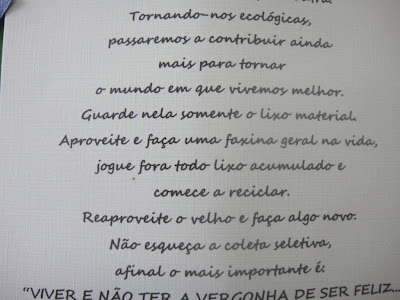 Tornando-nos ecológicas,
passaremos a contribuir ainda
mais para tornar
o mundo em que vivemos melhor.
Guarde nela somente o lixo material.
Aproveite e faça uma faxina geral na vida,
jogue fora todo lixo acumulado e
comece a reciclar.
Reaproveite o velho e faça algo novo.
Não esqueça a coleta seletiva,
afinal o mais importante é:
"VIVER E NÃO TER A VERGONHA DE SER FELIZ...